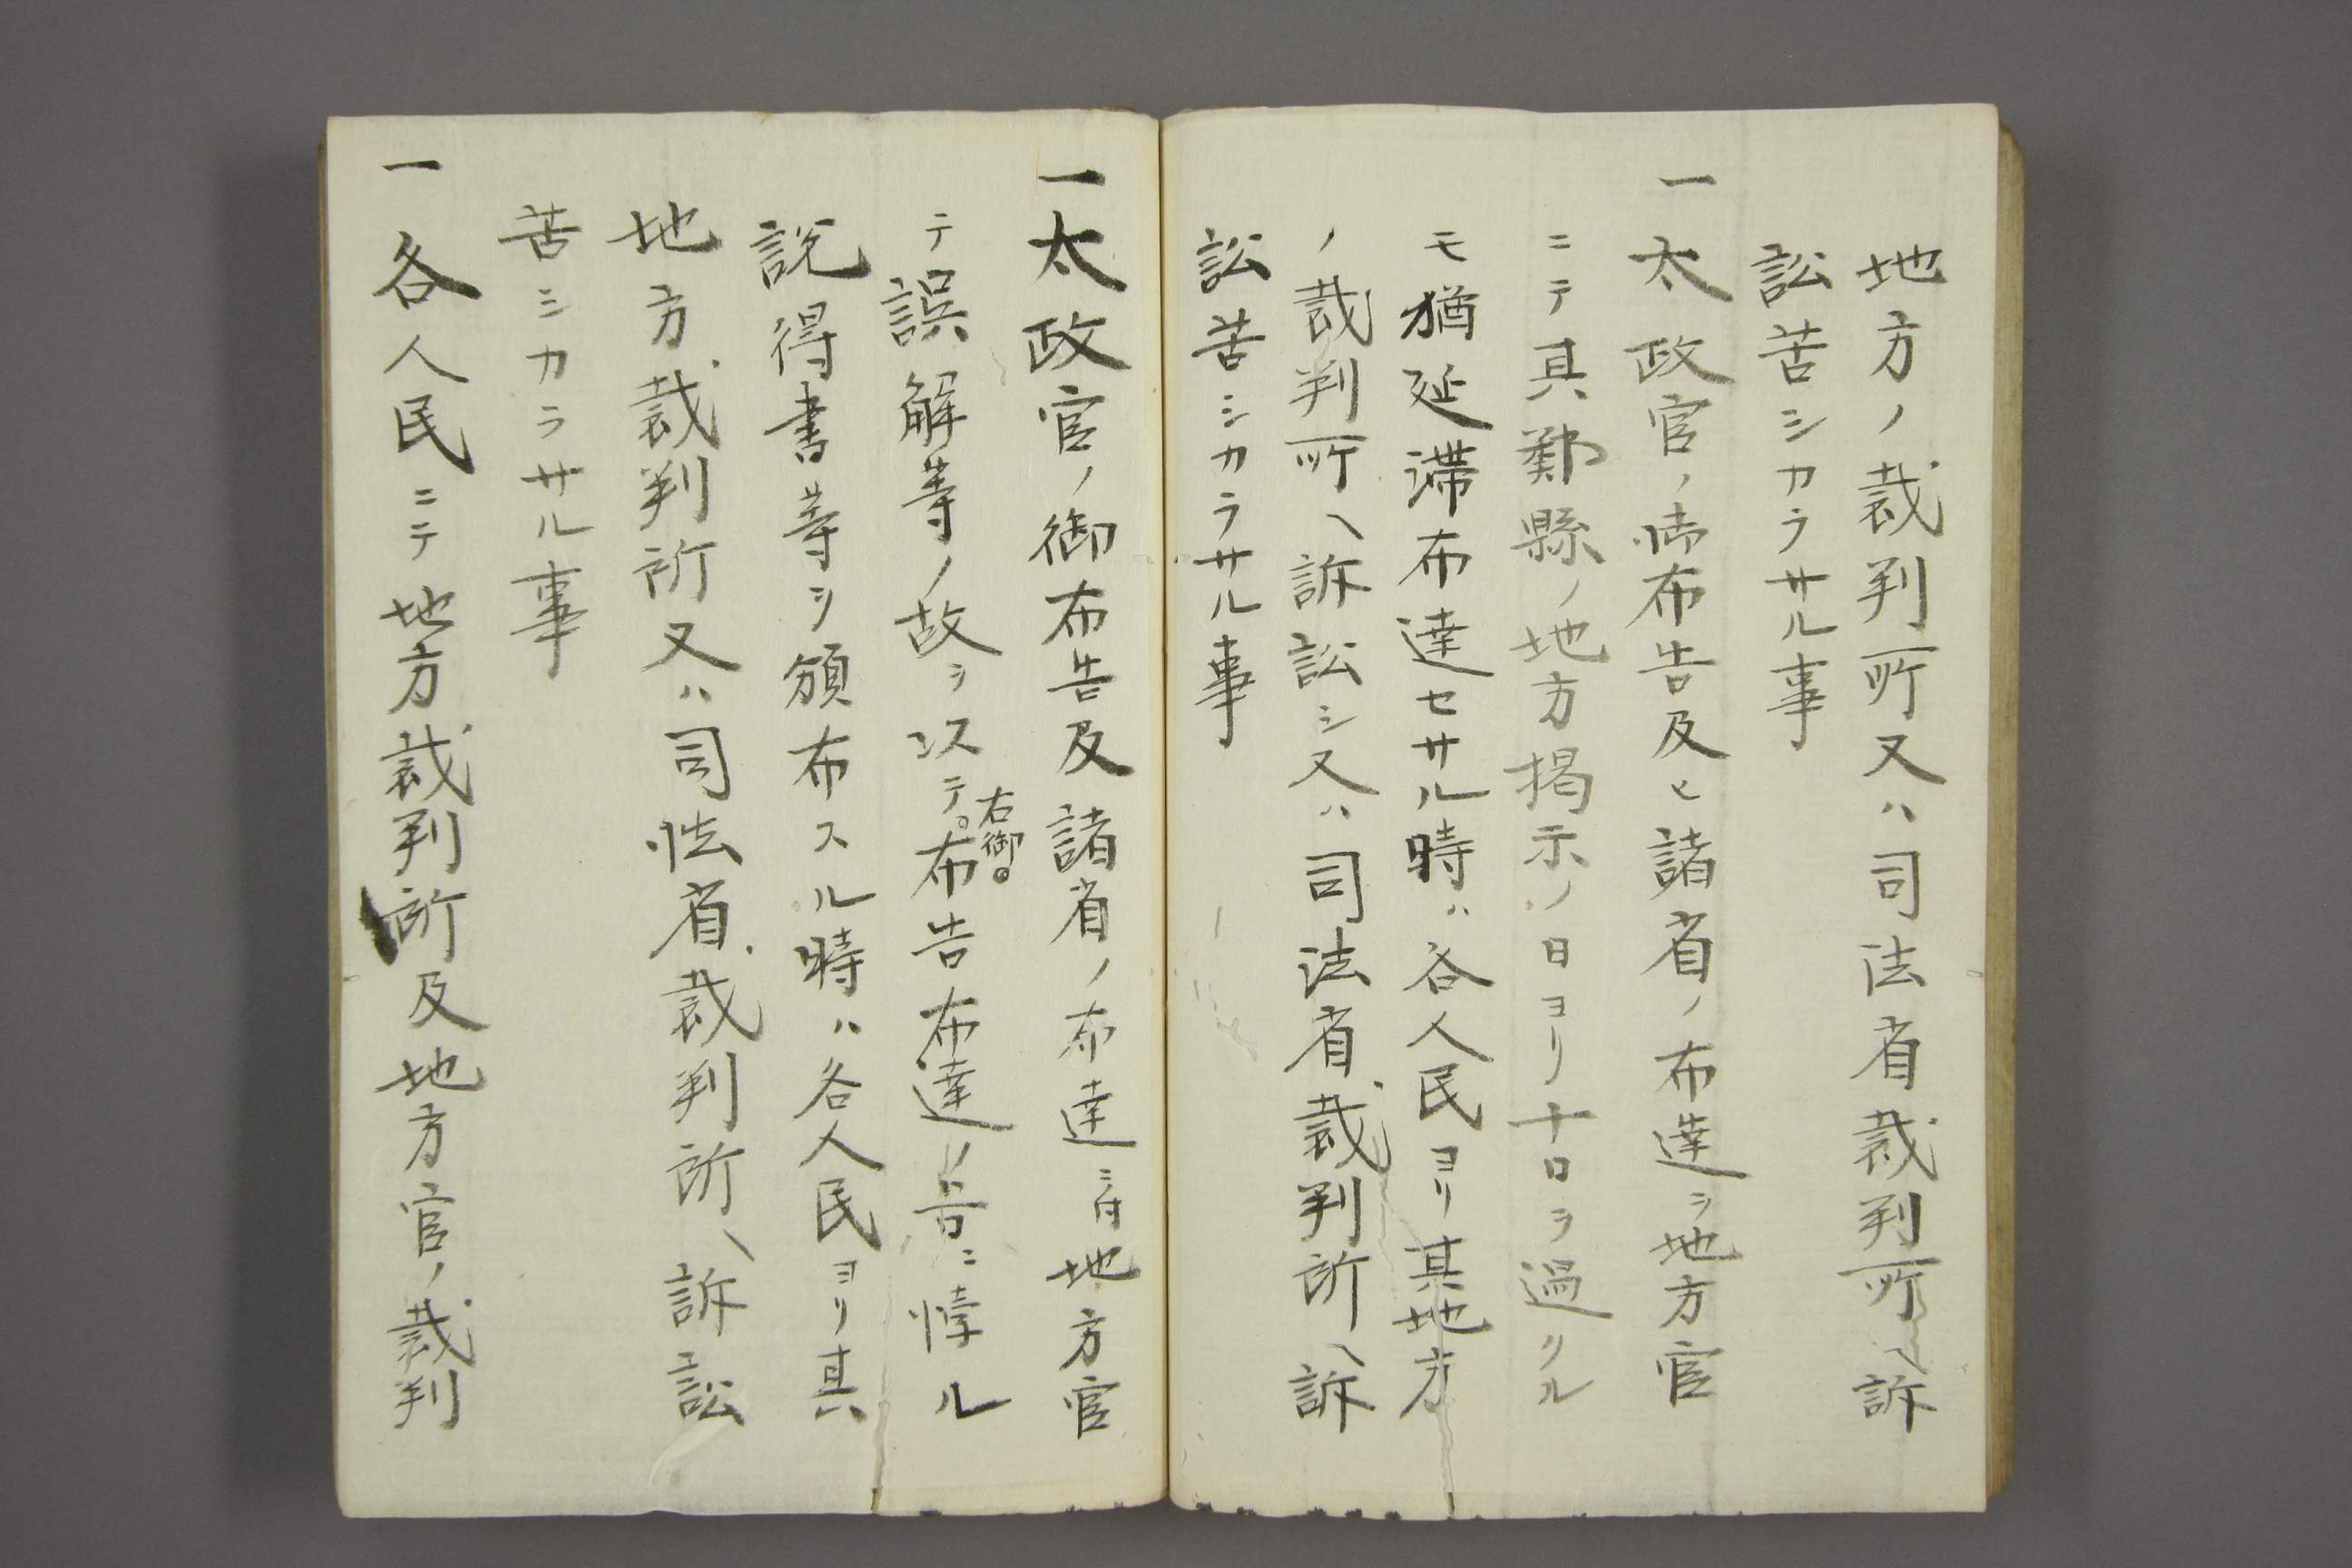 地方ノ裁判所又ハ司法省裁判所ヘ訴
訟苦シカラサル事
一太政官ノ御布告及ヒ諸省ノ布達ヲ地方官
ニテ其鄭縣ノ地方掲示ノ日ヨリ十日ヲ過クル
モ猶延滞布達セサル時ハ各人民ヨリ其地方
ノ裁判所ヘ訴訟シ又ハ司法省裁判所ヘ訴
訟苦シカラサル事
一太政官ノ御布告及諸省ノ布達ニ付地方官
テ誤解等ノ故ヲ以テ右御布告布達ノ旨ニ悖ル
説得書等ヲ頒布スル時ハ各人民ヨリ其
地方裁判所又ハ司法省裁判所ヘ訴訟
苦シカラサル事
一各人民ニテ地方裁判所及地方官ノ裁判